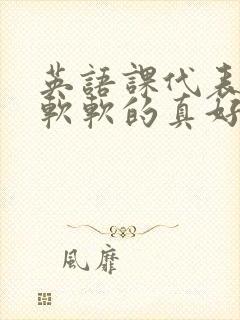 英語課代表
軟軟的真好
風靡